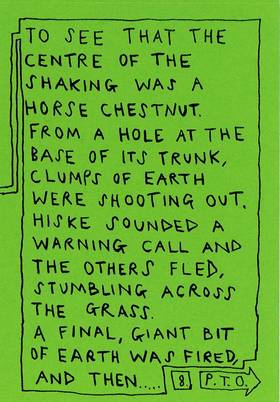 TO SEE THAT THE
CENTRE OF THE
SHAKING WAS A
HORSE CHESTNUT.
FROM A HOLE AT THE
BASE OF ITS TRUNK,
CLUMPS OF EARTH
WERE SHOOTING OUT.
HISKE SOUNDED A
WARNING CALL AND
THE OTHERS FLED,
STUMBLING ACROSS
THE GRASS.
A FINAL, GIANT BIT
OF EARTH WAS FIRED,
AND THEN..... 8 P.T.O.